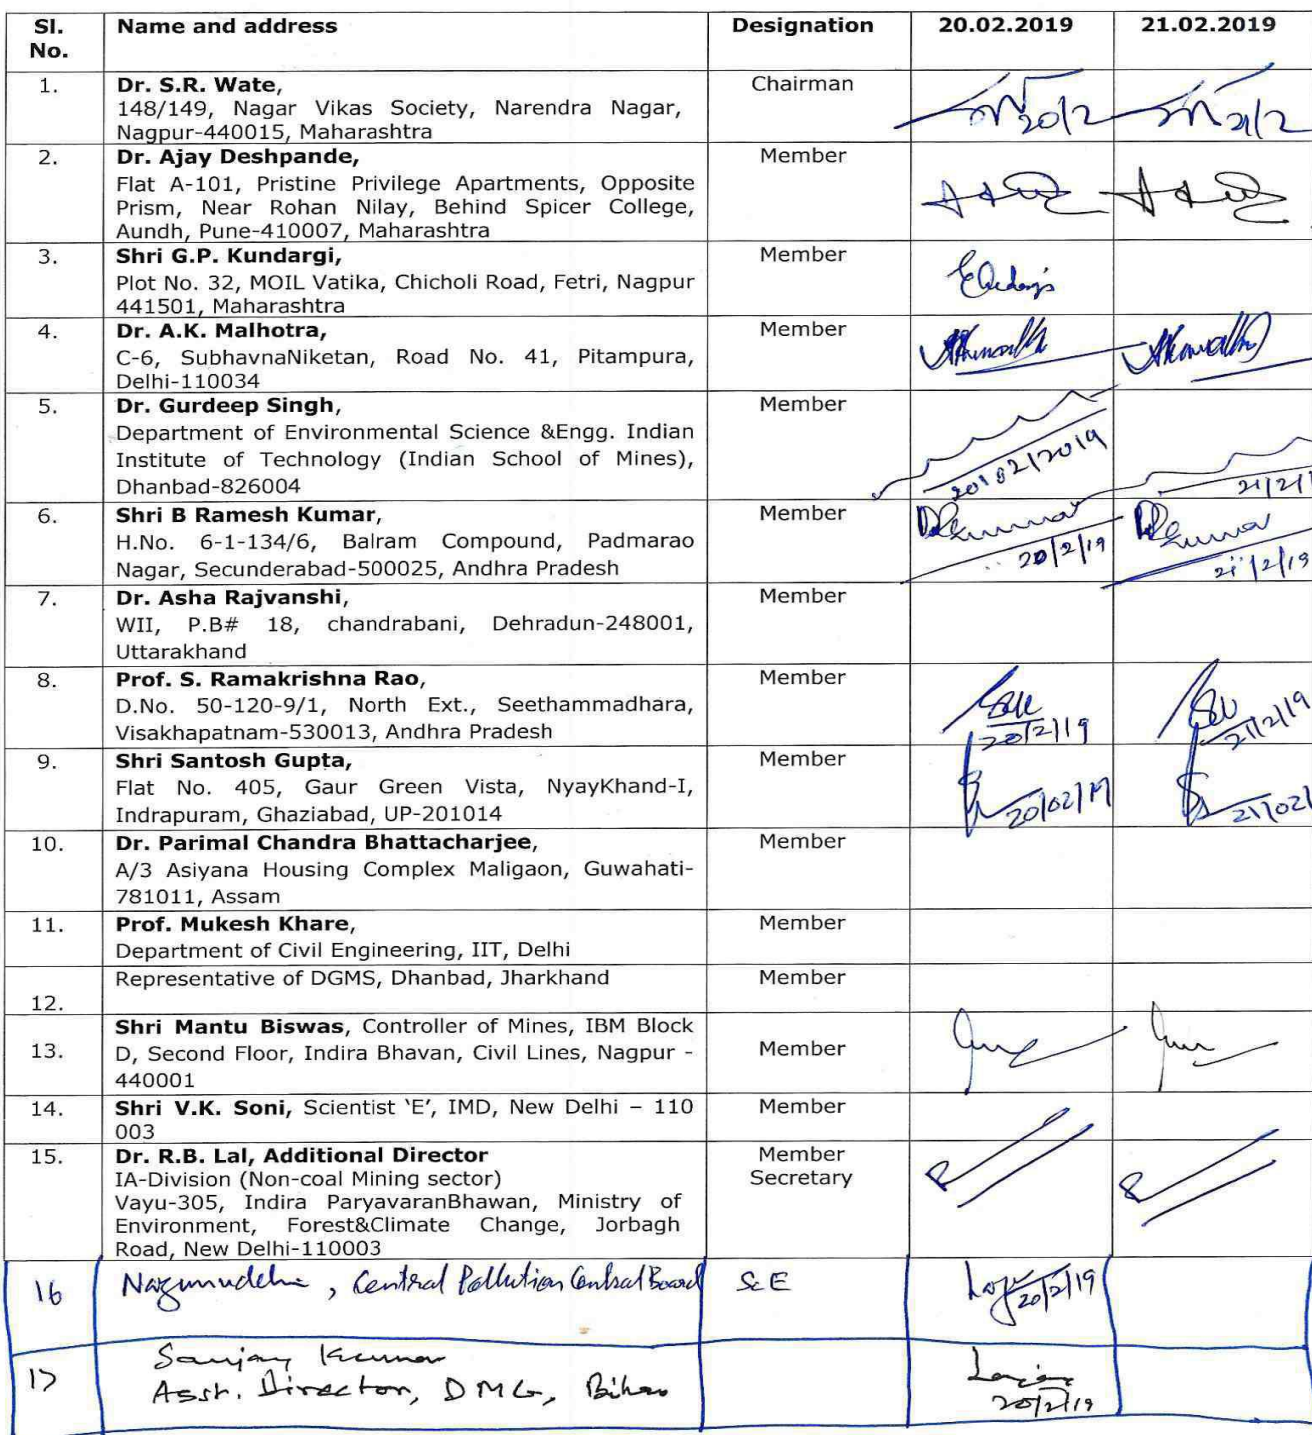 Sl. No. Name and address Designation 20.02.2019 21.02.2019
1. Dr. S.R. Wate, Chairman
148/149, Nagar Vikas Society, Narendra Nagar,
Nagpur-440015, Maharashtra
20/2 21/2
2. Dr. Ajay Deshpande, Member
Flat A-101, Pristine Privilege Apartments, Opposite
Prism, Near Rohan Nilay, Behind Spicer College,
Aundh, Pune-410007, Maharashtra
3. Shri G.P. Kundargi, Member
Plot No. 32, MOIL Vatika, Chicholi Road, Fetri, Nagpur
441501, Maharashtra
4. Dr. A.K. Malhotra, Member
C-6, SubhavnaNiketan, Road No. 41, Pitampura,
Delhi-110034
5. Dr. Gurdeep Singh, Member
Department of Environmental Science &Engg. Indian
Institute of Technology (Indian School of Mines),
Dhanbad-826004
20/02/2019 21/2/1
6. Shri B Ramesh Kumar, Member
H.No. 6-1-134/6, Balram Compound, Padmarao
Nagar, Secunderabad-500025, Andhra Pradesh
20/2/19 21/2/19
7. Dr. Asha Rajvanshi, Member
WII, P.B# 18, chandrabani, Dehradun-248001,
Uttarakhand
8. Prof. S. Ramakrishna Rao, Member
D.No. 50-120-9/1, North Ext., Seethammadhara,
Visakhapatnam-530013, Andhra Pradesh
20/2/19 21/2/19
9. Shri Santosh Gupta, Member
Flat No. 405, Gaur Green Vista, NyayKhand-I,
Indrapuram, Ghaziabad, UP-201014
20/02/19 21/02/
10. Dr. Parimal Chandra Bhattacharjee, Member
A/3 Asiyana Housing Complex Maligaon, Guwahati-
781011, Assam
11. Prof. Mukesh Khare, Member
Department of Civil Engineering, IIT, Delhi
12. Representative of DGMS, Dhanbad, Jharkhand Member
13. Shri Mantu Biswas, Controller of Mines, IBM Block Member
D, Second Floor, Indira Bhavan, Civil Lines, Nagpur -
440001
14. Shri V.K. Soni, Scientist ‘E’, IMD, New Delhi – 110 Member
003
15. Dr. R.B. Lal, Additional Director Member Secretary
IA-Division (Non-coal Mining sector)
Vayu-305, Indira ParyavaranBhawan, Ministry of
Environment, Forest&Climate Change, Jorbagh
Road, New Delhi-110003
16 , Central Pollution Control Board Sc E
20/2/19
17 Sanjay Kumar
Asst. Director, DMG, Bihar
20/2/19